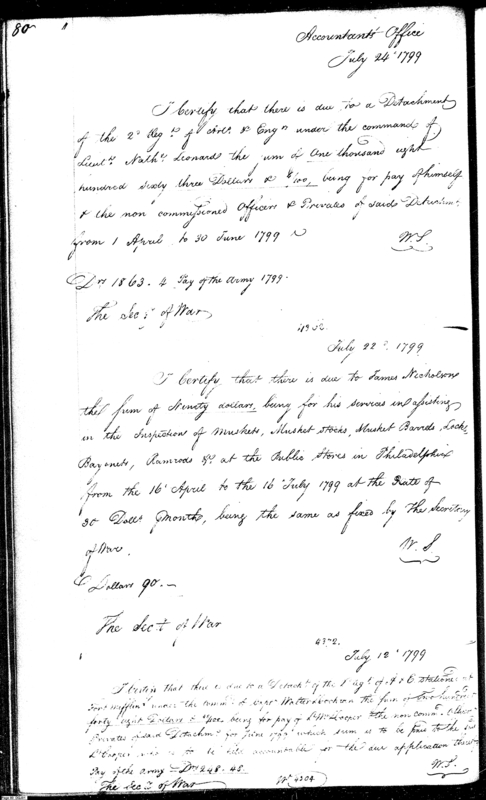 80
Accountants Office
July 24th 1799
I Certify that there is due to a Detachment
of the 2d Regt of Artl. & Engrs under the command of
Lieut. Nathl. Leonard the sum of One thousand eight
hundred sixty three Dollars & 4/100, being for pay of himself
& the non commissioned Officers & Privates of said Detachmt.
from 1 April to 30 June 1799
W.S.
Drs 1863. 4 Pay of the Army 1799.
The Secy of War
July 22d, 1799
I Certify, that there is due to James Nicholson
the sum of Ninety dollars, being for his services in assisting
in the Inspection of Muskets, Musket stocks, Musket Barrels, Locks
Bayonets, Ramrods &c at the Public Stores in Philadelphia
from the 16th April to the 16th July 1799 at the Rate of
30 Dolls. Month, being the same as fixed by the Secretary
of War.
W.S
Dollars 90.—
The Secy of War
4372.
July 12th 1799
I Certify that there is due to a Detacht. of the 1st Regt. of A & E stationed at
Fort Mifflin under the comd. of Capt the sum of two hundred
forty eight Dollars & 48/100 being for pay of Lt. Wm. Cooper the non comd. Officers
Privates of said Detachmt. for June 1799 which sum is to be paid to the said
Lt. Cooper who is to be held accountable for the due application thereof
Pay of the Army — Drs 248.48.
W.S.
The Secy of War
No 4304